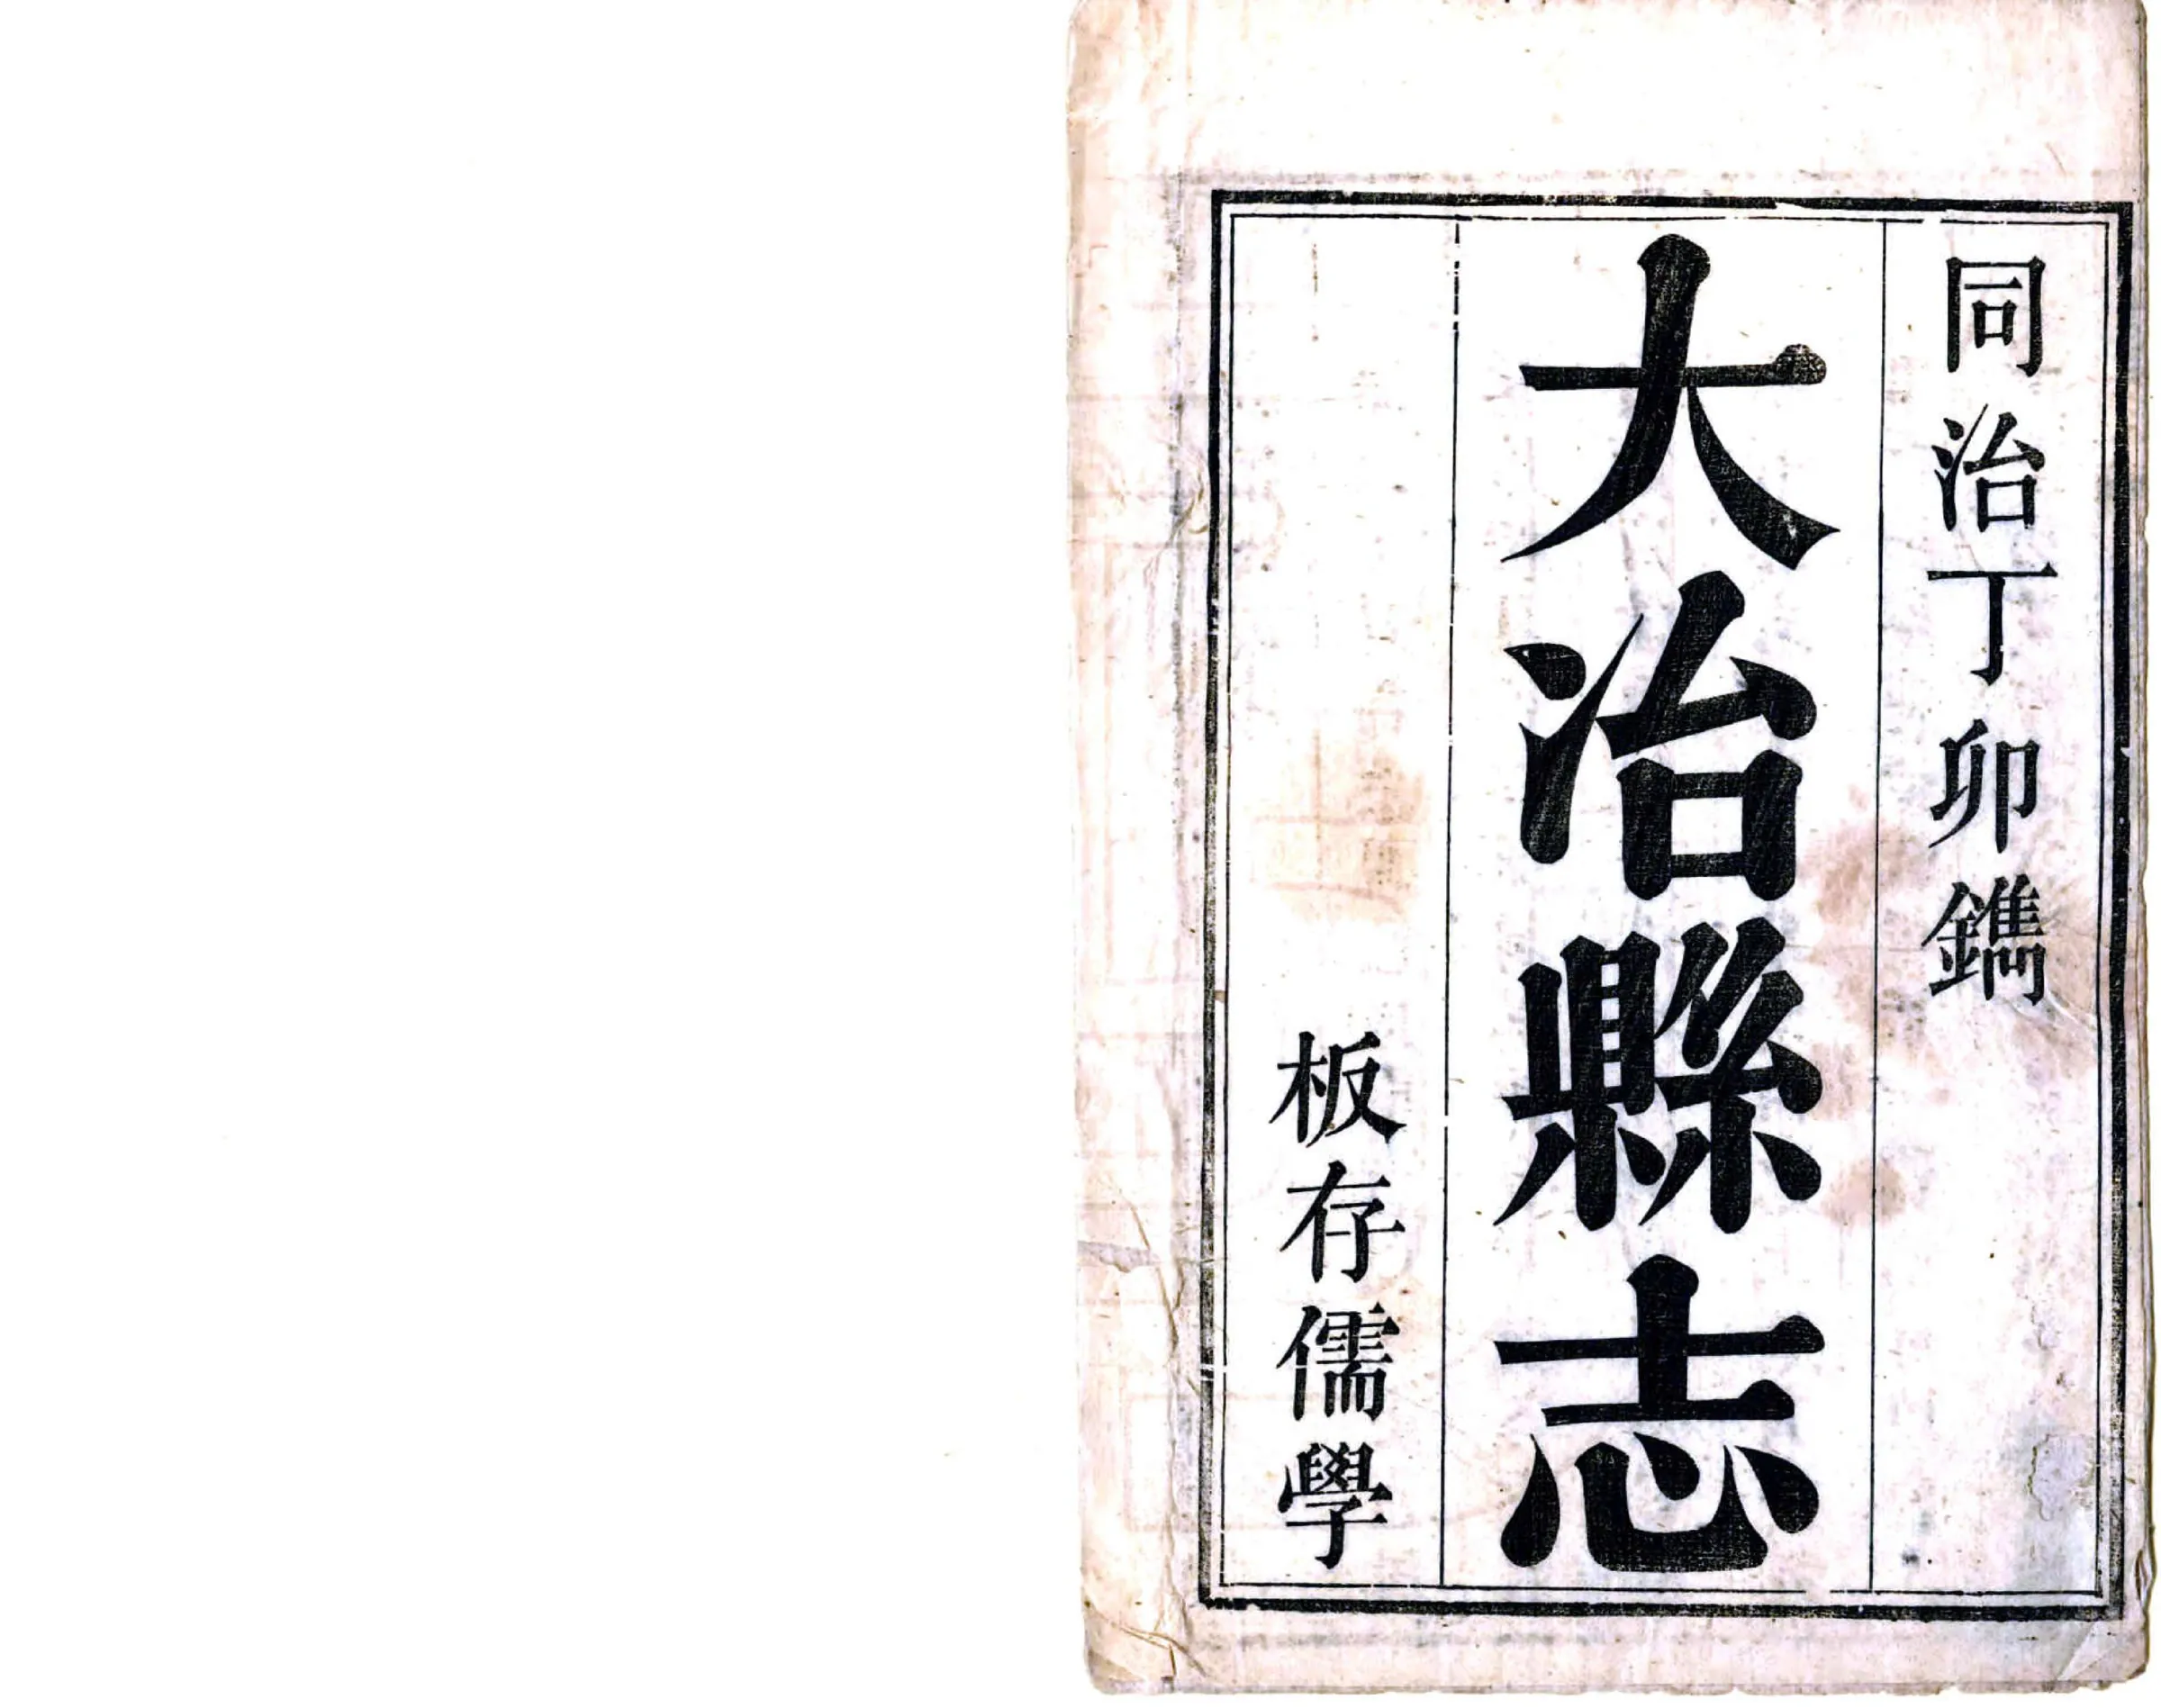 同治丁卯鐫
大冶縣志
板存儒學